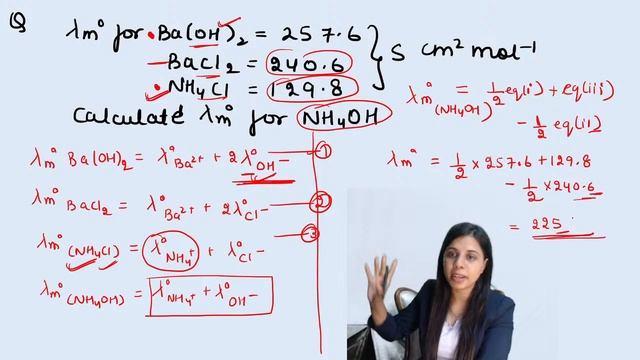 Q λm° for Ba(OH)₂ = 257.6
BaCl₂ = 240.6
NH₄Cl = 129.8
S cm² mol⁻¹
Calculate λm° for NH₄OH
λm° Ba(OH)₂ = λ°Ba²⁺ + 2λ°OH⁻ ①
λm° BaCl₂ = λ°Ba²⁺ + 2λ°Cl⁻ ②
λm° (NH₄Cl) = λ°NH₄⁺ + λ°Cl⁻ ③
λm° (NH₄OH) = λ°NH₄⁺ + λ°OH⁻
λm° (NH₄OH) = 1/2 eq(i) + eq(iii)
- 1/2 eq(ii)
λm° = 1/2 × 257.6 + 129.8
- 1/2 × 240.6
= 225